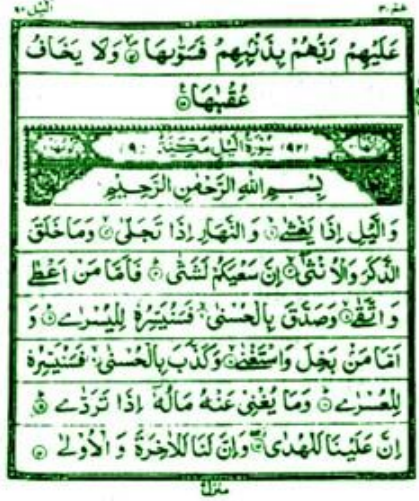 عم ٣٠ اليل ٩٢
عَلَيْهِمْ رَبُّهُمْ بِذَنْۢبِهِمْ فَسَوّٰىهَا ۙ وَلَا يَخَافُ
عُقْبٰهَا
سُوْرَةُ الَّيْلِ مَكِّيَّةٌ (٩٢) (٩)
بِسْمِ اللّٰهِ الرَّحْمٰنِ الرَّحِيْمِ
وَالَّيْلِ اِذَا يَغْشٰى ۙ وَالنَّهَارِ اِذَا تَجَلّٰى ۙ وَمَا خَلَقَ
الذَّكَرَ وَالْاُنْثٰۤى ۙ اِنَّ سَعْيَكُمْ لَشَتّٰى ؕ فَاَمَّا مَنْ اَعْطٰى
وَاتَّقٰى ۙ وَصَدَّقَ بِالْحُسْنٰى ۙ فَسَنُيَسِّرُهٗ لِلْيُسْرٰى ؕ وَ
اَمَّا مَنْۢ بَخِلَ وَاسْتَغْنٰى ۙ وَكَذَّبَ بِالْحُسْنٰى ۙ فَسَنُيَسِّرُهٗ
لِلْعُسْرٰى ؕ وَمَا يُغْنِيْ عَنْهُ مَالُهٗۤ اِذَا تَرَدّٰى ؕ
اِنَّ عَلَيْنَا لَلْهُدٰى ۖ وَاِنَّ لَنَا لَلْاٰخِرَةَ وَالْاُوْلٰى
منزل